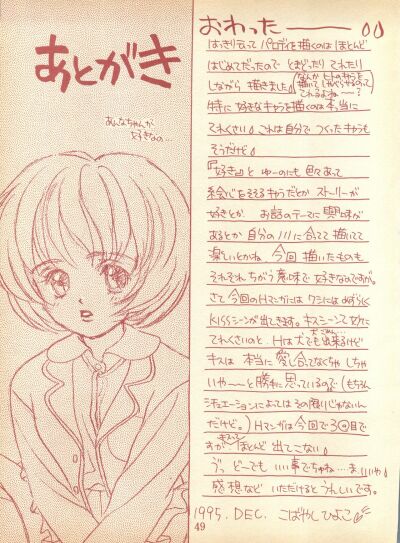 あとがき
あんなちゃんが
好きなの…
おわったーー
はっきり言って パロディを描くのは ほとんど
はじめてだったので とまどったり てれたり
しながら 描きました
特に 好きなキャラを描くのは 本当に
てれくさい。これは自分で つくったキャラも
そうだけど
『好き』と ゆーのにも 色々あって
絵心をそそるキャラだとか ストーリーが
好きとか お話のテーマに 興味が
あるとか 自分のノリに 合ってて 描いてて
楽しいとかね。今回 描いたものも
それぞれ ちがう意味で 好きなのですが。
さて 今回のHマンガには ワシには めずらしく
KISSシーンが出てきます。キスシーンて 妙に
てれくさいのと、Hは犬でも出来るけど
キスは 本当に 愛し合ってなくちゃ しちゃ
いや〜〜と 勝手に 思っているので(もちろん
シチュエーションによっては その限りじゃないん
だけど。)Hマンガは 今回で3回目で
すが、キスシーン ほとんど 出てこない
うっ どーでも いい事でちゃね…ま、いいや。
感想など いただけると うれしいです。
1995. DEC. こばやし ひよこ
49